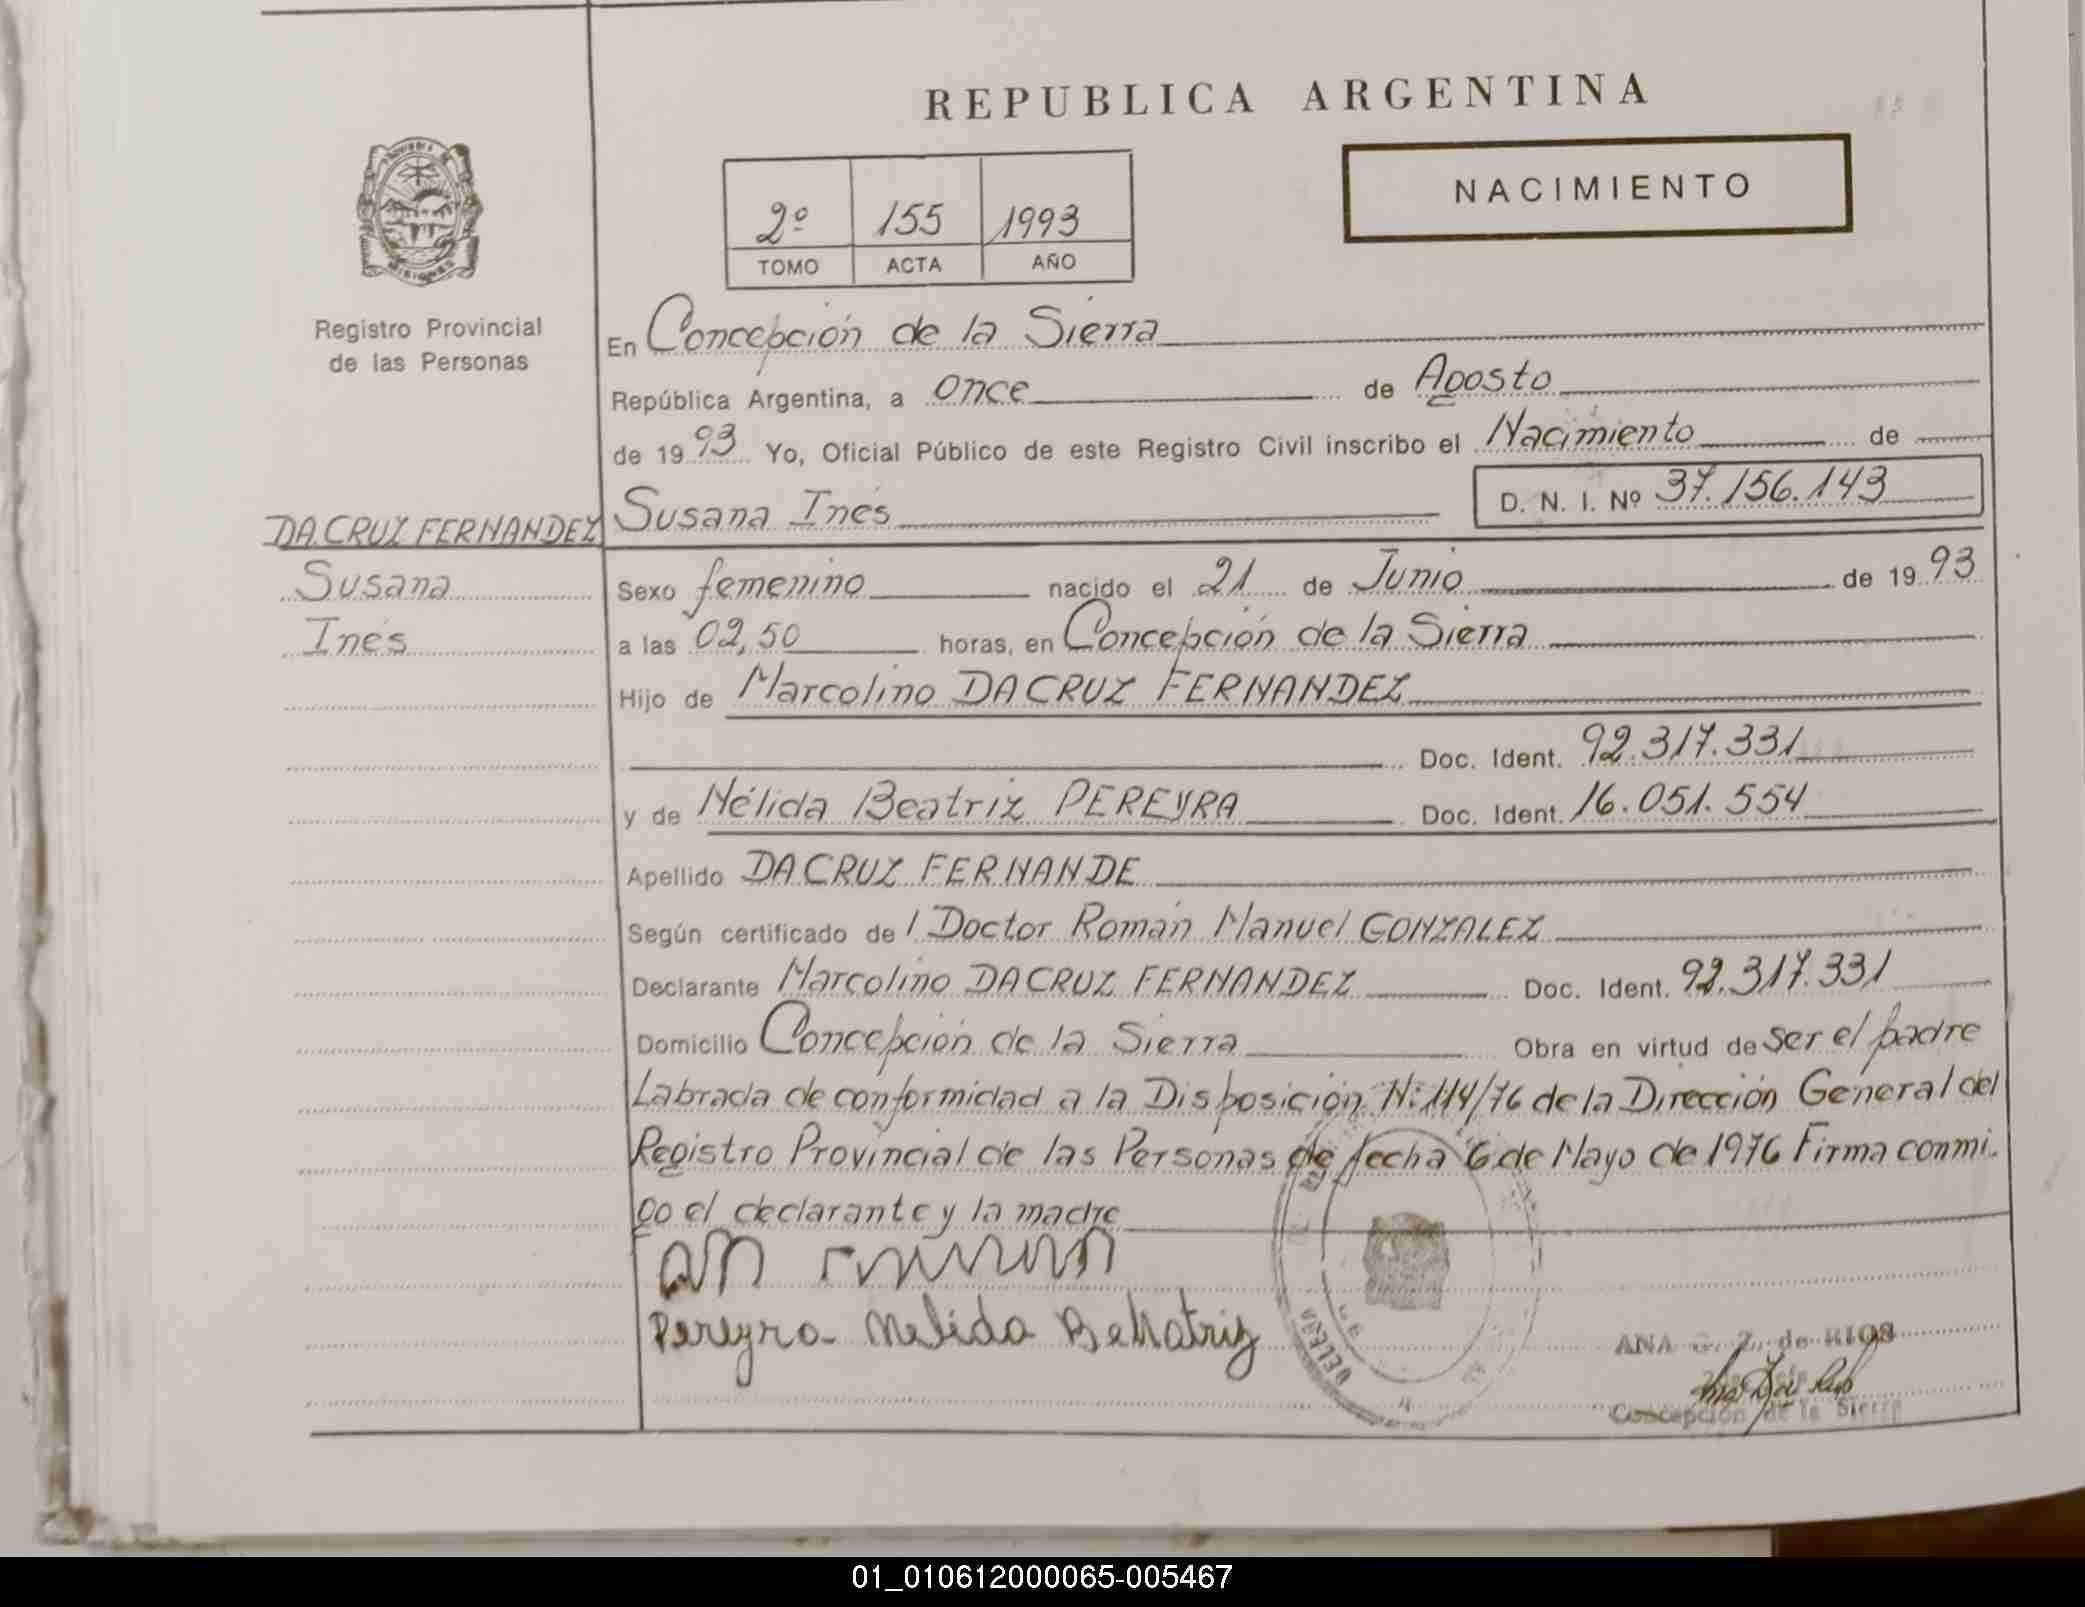 REPUBLICA ARGENTINA
NACIMIENTO
2º 155 1993
TOMO ACTA AÑO
MISIONES
Registro Provincial
de las Personas
En Concepción de la Sierra
República Argentina, a once de Agosto
de 1993 Yo, Oficial Público de este Registro Civil inscribo el Nacimiento de
Susana Inés D. N. I. Nº 37.156.143
DA CRUZ FERNANDEZ
Susana
Inés
Sexo femenino nacido el 21 de Junio de 1993
a las 02,50 horas, en Concepción de la Sierra
Hijo de Marcolino DA CRUZ FERNANDEZ
Doc. Ident. 92.317.331
y de Nélida Beatriz PEREYRA Doc. Ident. 16.051.554
Apellido DA CRUZ FERNANDE
Según certificado de l Doctor Román Manuel GONZALEZ
Declarante Marcolino DA CRUZ FERNANDEZ Doc. Ident. 92.317.331
Domicilio Concepción de la Sierra Obra en virtud de ser el padre
Labrada de conformidad a la Disposición Nº 114/76 de la Dirección General del
Registro Provincial de las Personas de fecha 6 de Mayo de 1976 Firma conmi-
go el declarante y la madre
Pereyra Nelida Beatriz
ANA G. Z. de RIOS
Concepción de la Sierra
01_010612000065-005467